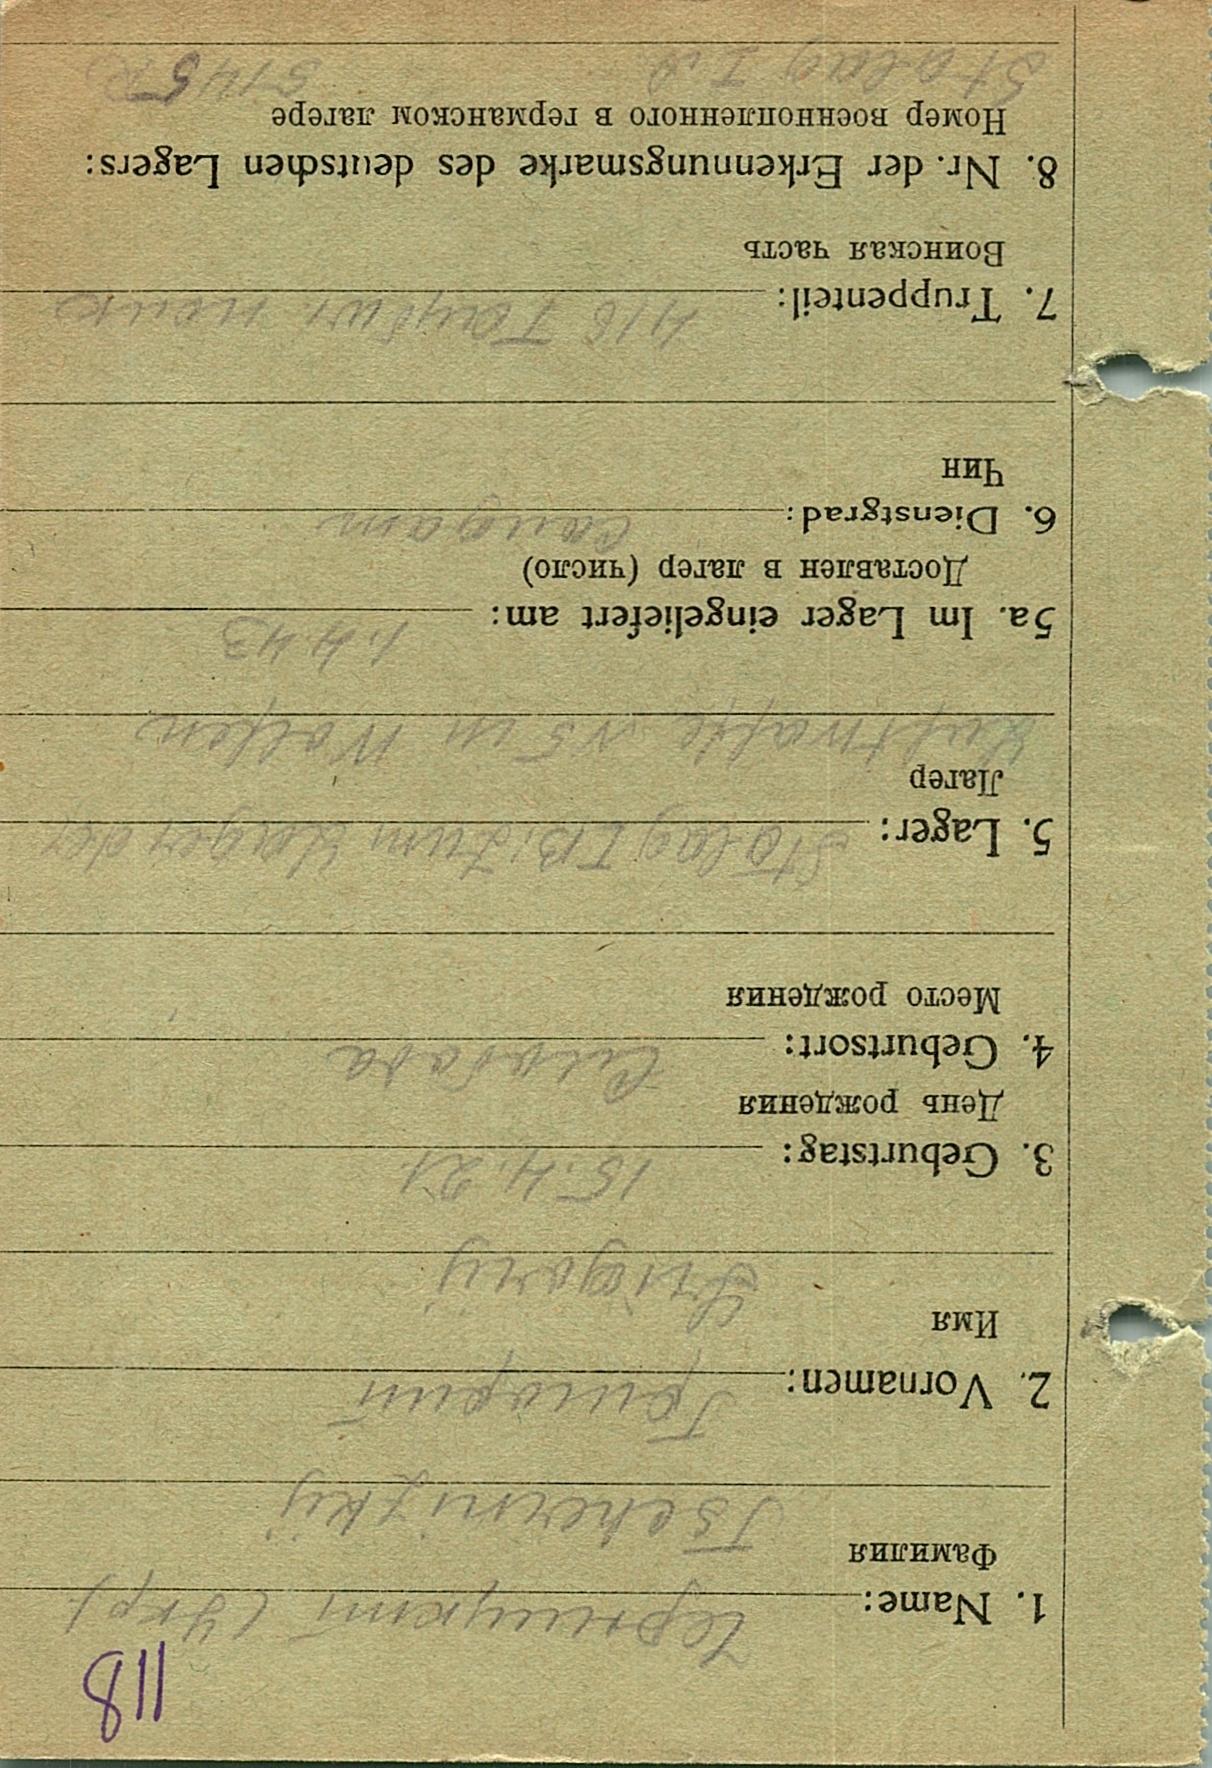 118
1. Name: Черницкий (Укр)
Фамилия
Tschernizkij
2. Vornamen: Григорий
Имя
Grigorij
3. Geburtstag: 15.4.21
День рождения
4. Geburtsort:
Место рождения
5. Lager: Stalag IB. Zum Lager der
Лагер
Luftwaffe N5 in
5a. Im Lager eingeliefert am: 1.4.43
Доставлен в лагер (число)
6. Dienstgrad: Солдат
Чин
7. Truppenteil: 416
Воинская часть
8. Nr. der Erkennungsmarke des deutschen Lagers:
Номер военнопленного в германском лагере
Stalag